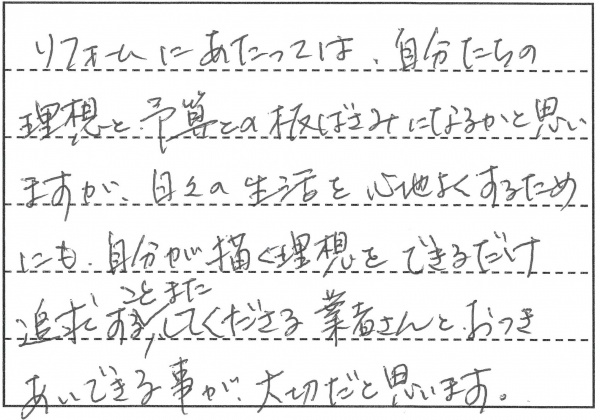 リフォームにあたっては、自分たちの
理想と予算との板ばさみになるかと思い
ますが、日々の生活を心地よくするため
にも、自分が描く理想をできるだけ
追求することまた、してくださる業者さんとおつき
あいできる事が、大切だと思います。